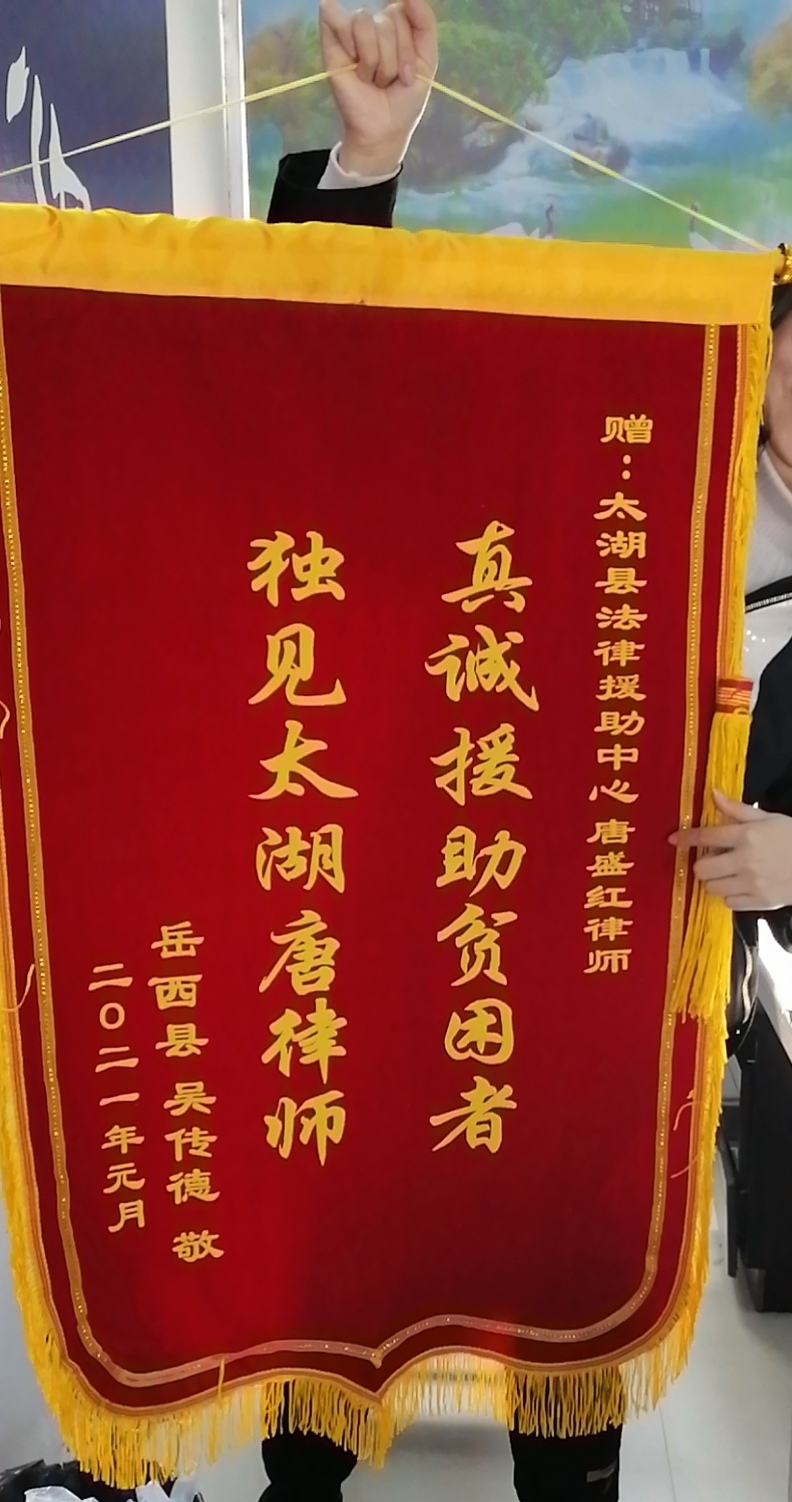 赠：太湖县法律援助中心 唐盛红律师
真诚援助贫困者
独见太湖唐律师
岳西县 吴传德 敬
二〇二一年元月